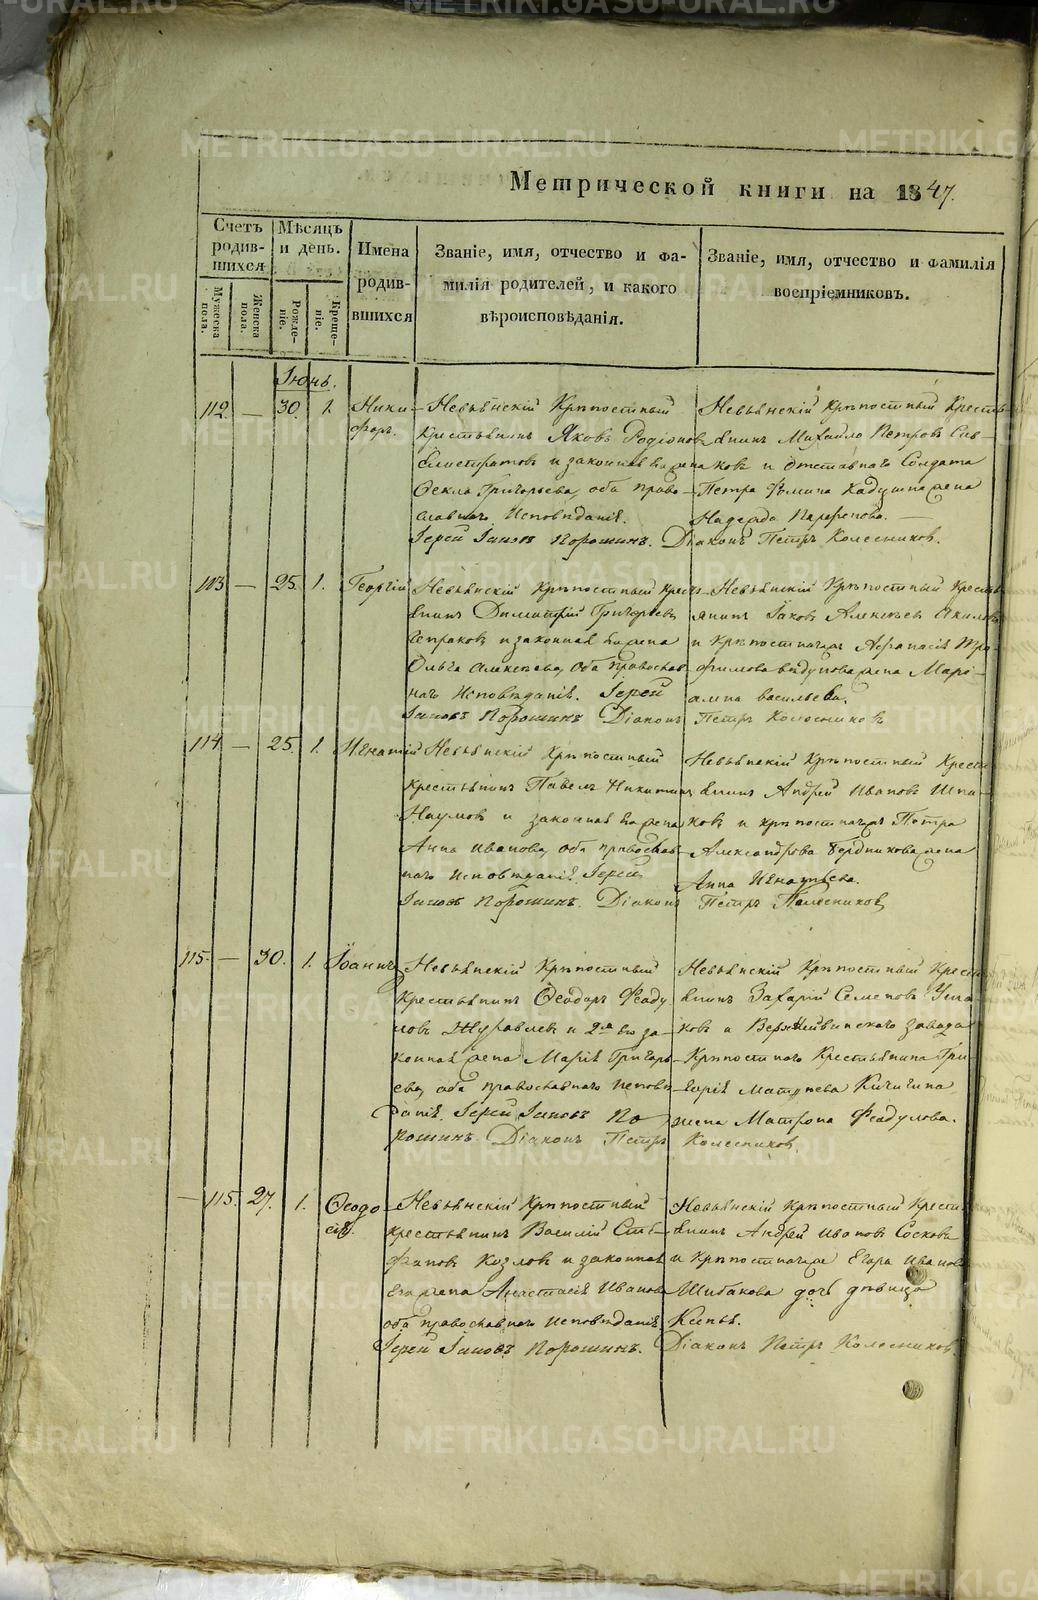 Метрической книги на 1847.
Счетъ родив- шихся
Мѣсяцъ и день.
Имена родив- вшихся
Званіе, имя, отчество и фа- милія родителей, и какого вѣроисповѣданія.
Званіе, имя, отчество и фамилія воспріемниковъ.
Мужеска пола.
Женска пола.
Рожде- ніе.
Креще- ніе.
Іюнь.
112. — 30. 1. Ники- форъ.
Невьянскій Крѣпостный
крестьянинъ Яковъ Родіоновъ
и законная ея жена
Ѳекла Григорьева, оба право-
славнаго Исповѣданія.
Невьянскій крѣпостный Кресть-
янинъ Михайло Петровъ
ковъ и отставнаго Солдата
Петра жена
Надежда
Іерей Іаковъ Порошинъ. Діаконъ Петръ Колесниковъ.
113 — 25. 1. Георгій
Невьянскій Крѣпостный Крест-
янинъ Димитрій Григорьевъ
и законная ея жена
Ольга Алексѣева, оба православ-
наго Исповѣданія. Іерей
Невьянскій Крѣпостный Кресть-
янинъ Іаковъ Алексѣевъ
и крѣпостнаго Афанасія Тро-
фимова вдова жена Марі-
амна Васильева.
Іаковъ Порошинъ Діаконъ Петръ Колесниковъ
114 — 25. 1. Игнатій
Невьянскій Крѣпостный
крестьянинъ Павелъ Никитинъ
Наумовъ и законная ея жена
Анна Иванова, оба православ-
наго исповѣданія. Іерей
Невьянскій Крѣпостный Крест-
янинъ Андрей Ивановъ Шпа-
ковъ и крѣпостнаго Петра
Александрова Бердникова жена
Анна Игнатьева.
Іаковъ Порошинъ. Діаконъ Петръ Колесниковъ
115. — 30. 1. Іоаннъ
Невьянскій Крѣпостный
крестьянинъ Ѳеодоръ Феаду
ловъ Журавлевъ и 2я его за-
конная жена Марія Григорь
ева, оба православнаго исповѣ
данія. Іерей Іаковъ По
Невьянскій Крѣпостный Крест
янинъ Захарій Семеновъ Уша
ковъ и Верхнейвинскаго завода
Крѣпостнаго Крестьянина Гри
горія Матвѣева Кичигина
жена Матрона Феадулова.
рошинъ. Діаконъ Петръ Колесниковъ
— 115. 27. 1. Ѳеодо сія.
Невьянскій Крѣпостный
крестьянинъ Василій Сте-
фановъ Козловъ и законная
его жена Анастасія Иванова
оба православнаго исповѣданія
Невьянскій Крѣпостный Крест
янинъ Андрей Ивановъ Сосковъ
и крѣпостнаго Егора Иванова
Шибакова дочь дѣвица
Іерей Іаковъ Порошинъ. Діаконъ Петръ Колесниковъ.
METRIKI.GASO-URAL.RU